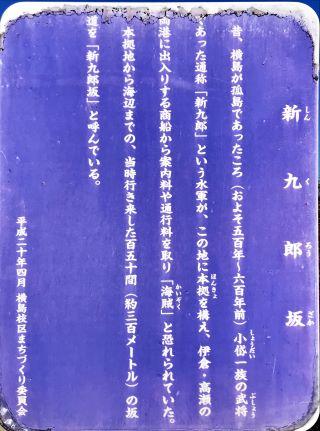 新九郎坂
しんくろうざか
昔、横島が孤島であったころ（およそ五百年～六百年前）小岱一族の武将
しょうだい
ぶしょう
あった通称「新九郎」という水軍が、この地に本拠を構え、伊倉・高瀬の
ほんきょ
両港に出入りする商船から案内料や通行料を取り「海賊」と恐れられていた。
かいぞく
本拠地から海辺までの、当時行き来した百五十間（約三百メートル）の坂
道を「新九郎坂」と呼んでいる。
平成二十年四月　横島校区まちづくり委員会